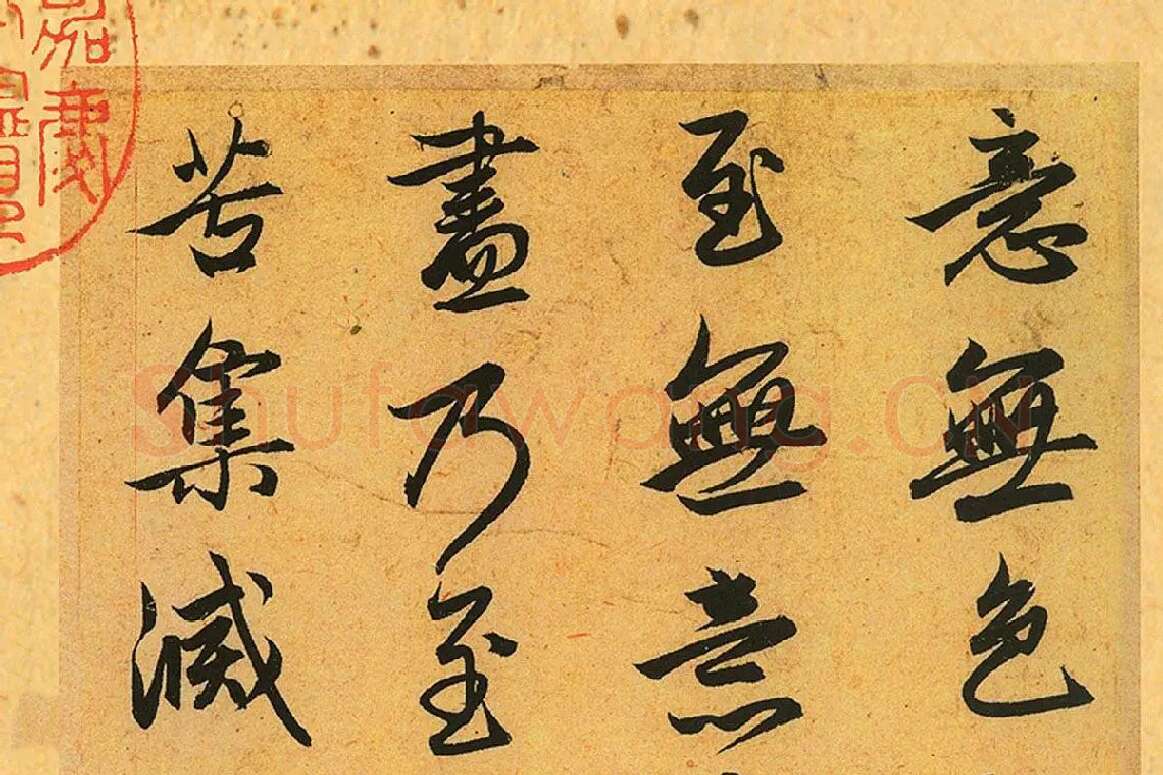 意無色
至無意
盡乃至
苦集滅
Shufawang.CN